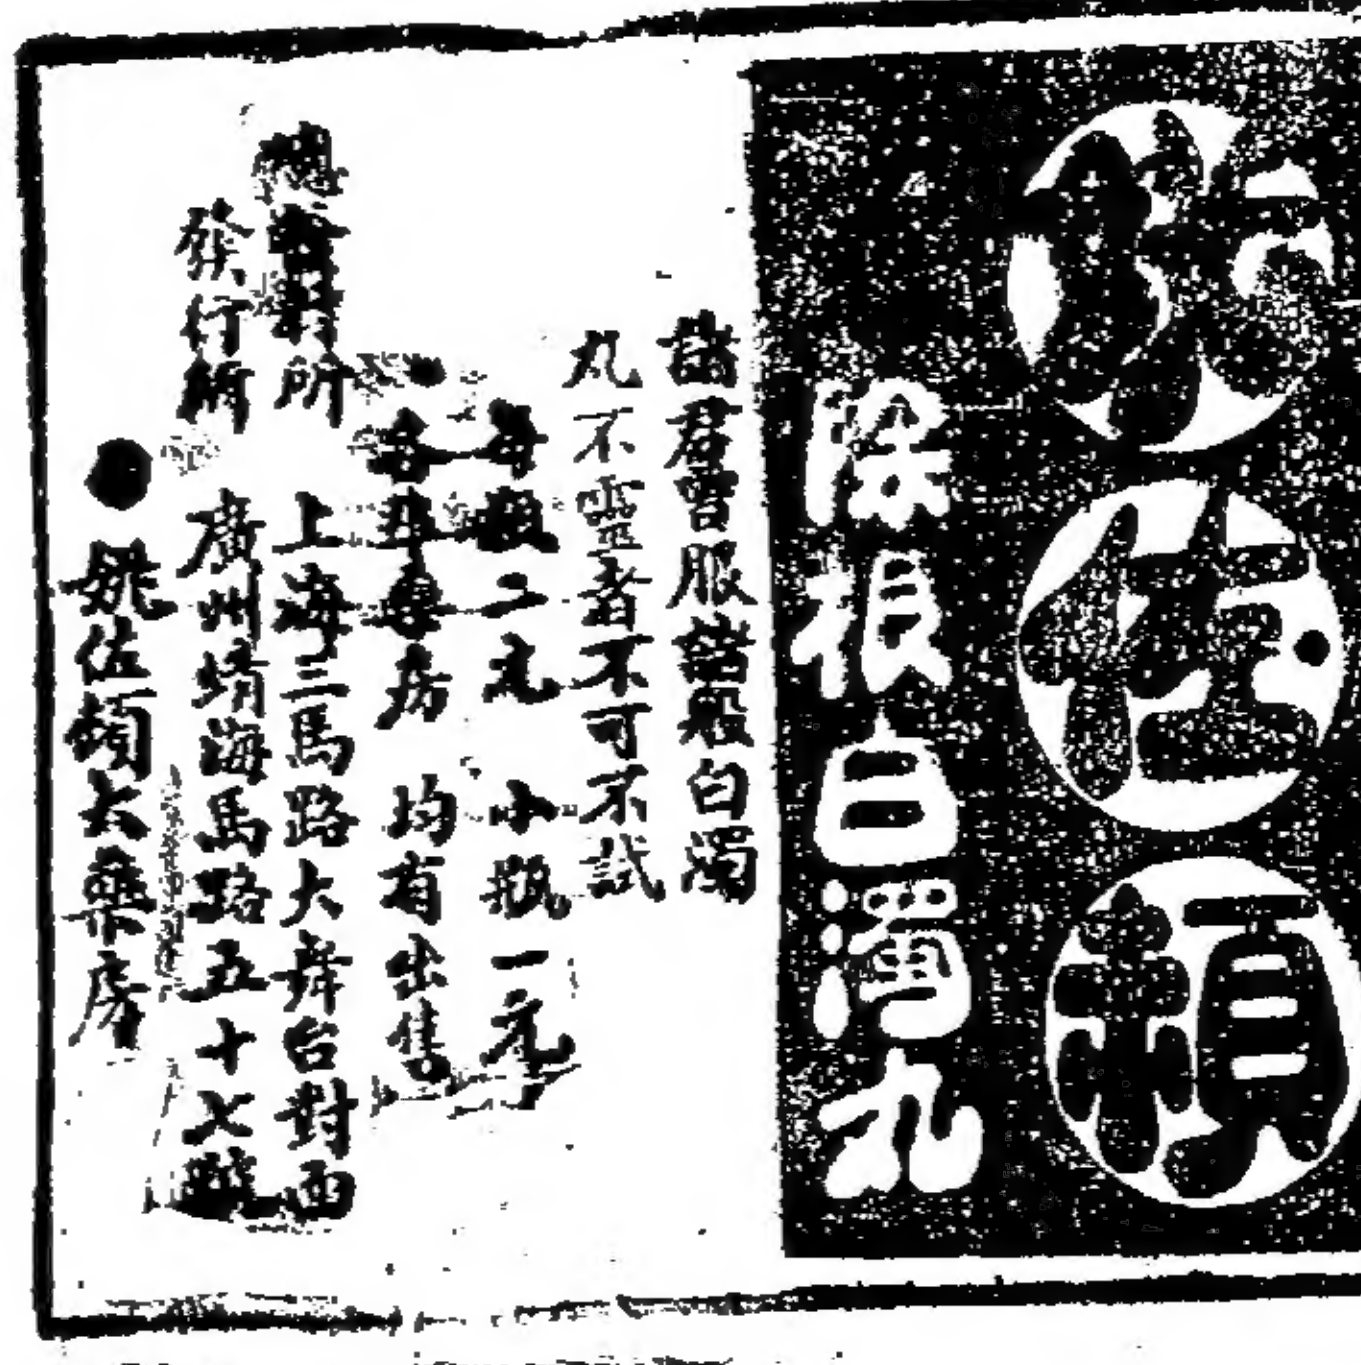 姚佐頓
除根白濁丸
諸君曾服諸般白濁
丸不靈者不可不試
每瓶二元 小瓶一元
各埠藥房 均有出售
總發行所 上海三馬路大舞台對面
發行所 廣州靖海馬路五十七號
●姚佐頓大藥房